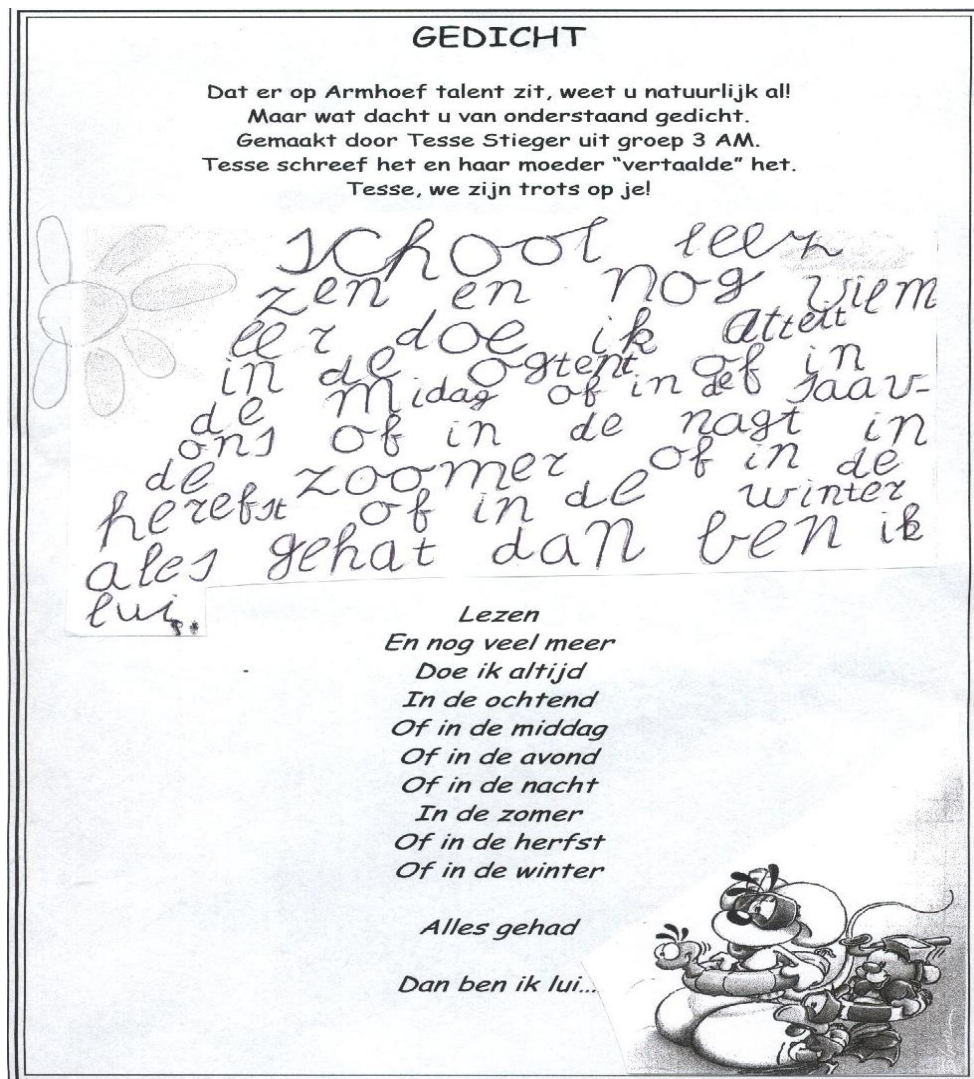 GEDICHT
Dat er op Armhoef talent zit, weet u natuurlijk al!
Maar wat dacht u van onderstaand gedicht.
Gemaakt door Tesse Stieger uit groep 3 AM.
Tesse schreef het en haar moeder “vertaalde” het.
Tesse, we zijn trots op je!
school leez
zen en nog viem
eer doe ik altett
in de ogtent of in
de midag of in de saav-
ons of in de nagt in
de zoomer of in de
herefst of in de winter
ales gehat dan ben ik
lui.
Lezen
En nog veel meer
Doe ik altijd
In de ochtend
Of in de middag
Of in de avond
Of in de nacht
In de zomer
Of in de herfst
Of in de winter
Alles gehad
Dan ben ik lui...